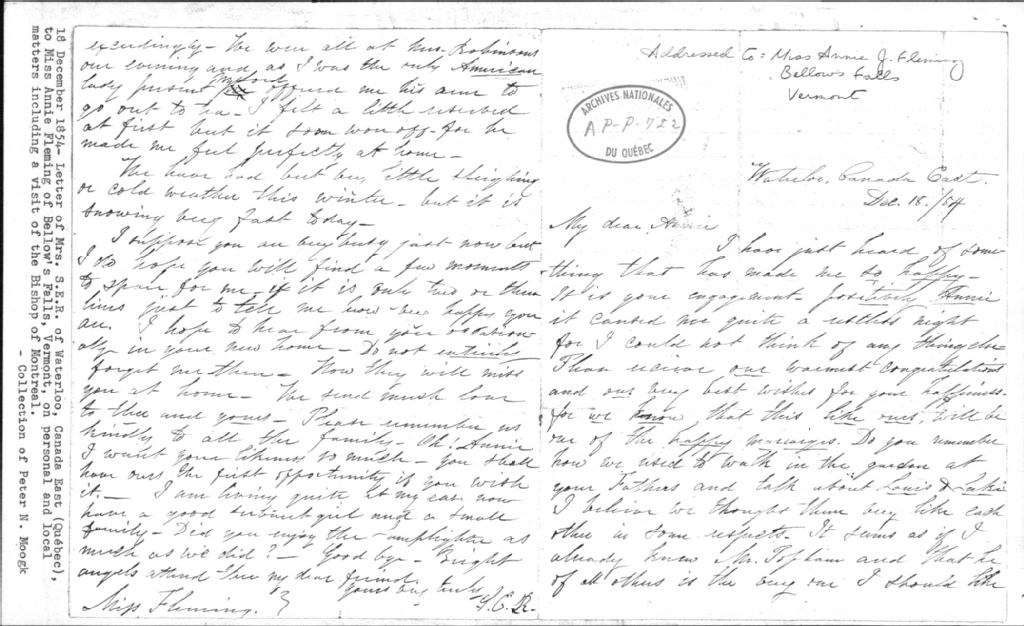 18 December 1854- Letter of Mrs. S.E.R. of Waterloo, Canada East (Québec),
to Miss Annie Fleming of Bellow's Falls, Vermont, on personal and local
matters including a visit of the Bishop of Montreal.
- Collection of Peter N. Moogk
exceedingly - We were all at Mrs. Robinsons
one evening and as I was the only American
lady present offered me his arm to
go out to tea - I felt a little reserved
at first but it soon wore off - for he
made me feel perfectly at home -
We have had but very little sleighing
or cold weather this winter - but it is
snowing very fast today -
I suppose you are very busy just now but
I do hope you will find a few moments
to spare for me - if it is only two or three
lines just to tell me how very happy you
are. I hope to hear from you occasion
ally in your new home - Do not entirely
forget me then - How they will miss
you at home - We send much love
to thee and yours - Please remember us
kindly to all the family - Oh! Annie
I want your likeness so much - you shall
have ours the first opportunity if you wish
it. - I am living quite at my ease now
have a good servant girl and a small
family - Did you enjoy the as
much as we did? - Good bye - Bright
angels attend thee my dear friend
yours very truly
Miss Fleming. S.E.R.
Addressed to: Miss Annie J. Fleming
Bellows Falls
Vermont
ARCHIVES NATIONALES
AP-P-722
DU QUÉBEC
Waterloo, Canada East.
Dec. 18./54
My dear Annie
I have just heard of some
thing that has made me so happy -
It is your engagement - positively Annie
it caused me quite a restless night
for I could not think of any thing else
Please receive our warmest congratulations
and our very best wishes for your happiness -
for we know that this like ours, will be
one of the happy marriages. Do you remember
how we used to walk in the garden at
your Fathers and talk about Louis &
I believe we thought them very like each
other in some respects. It seems as if I
already knew Mr. Topham and that he
of all others is the very one I should like